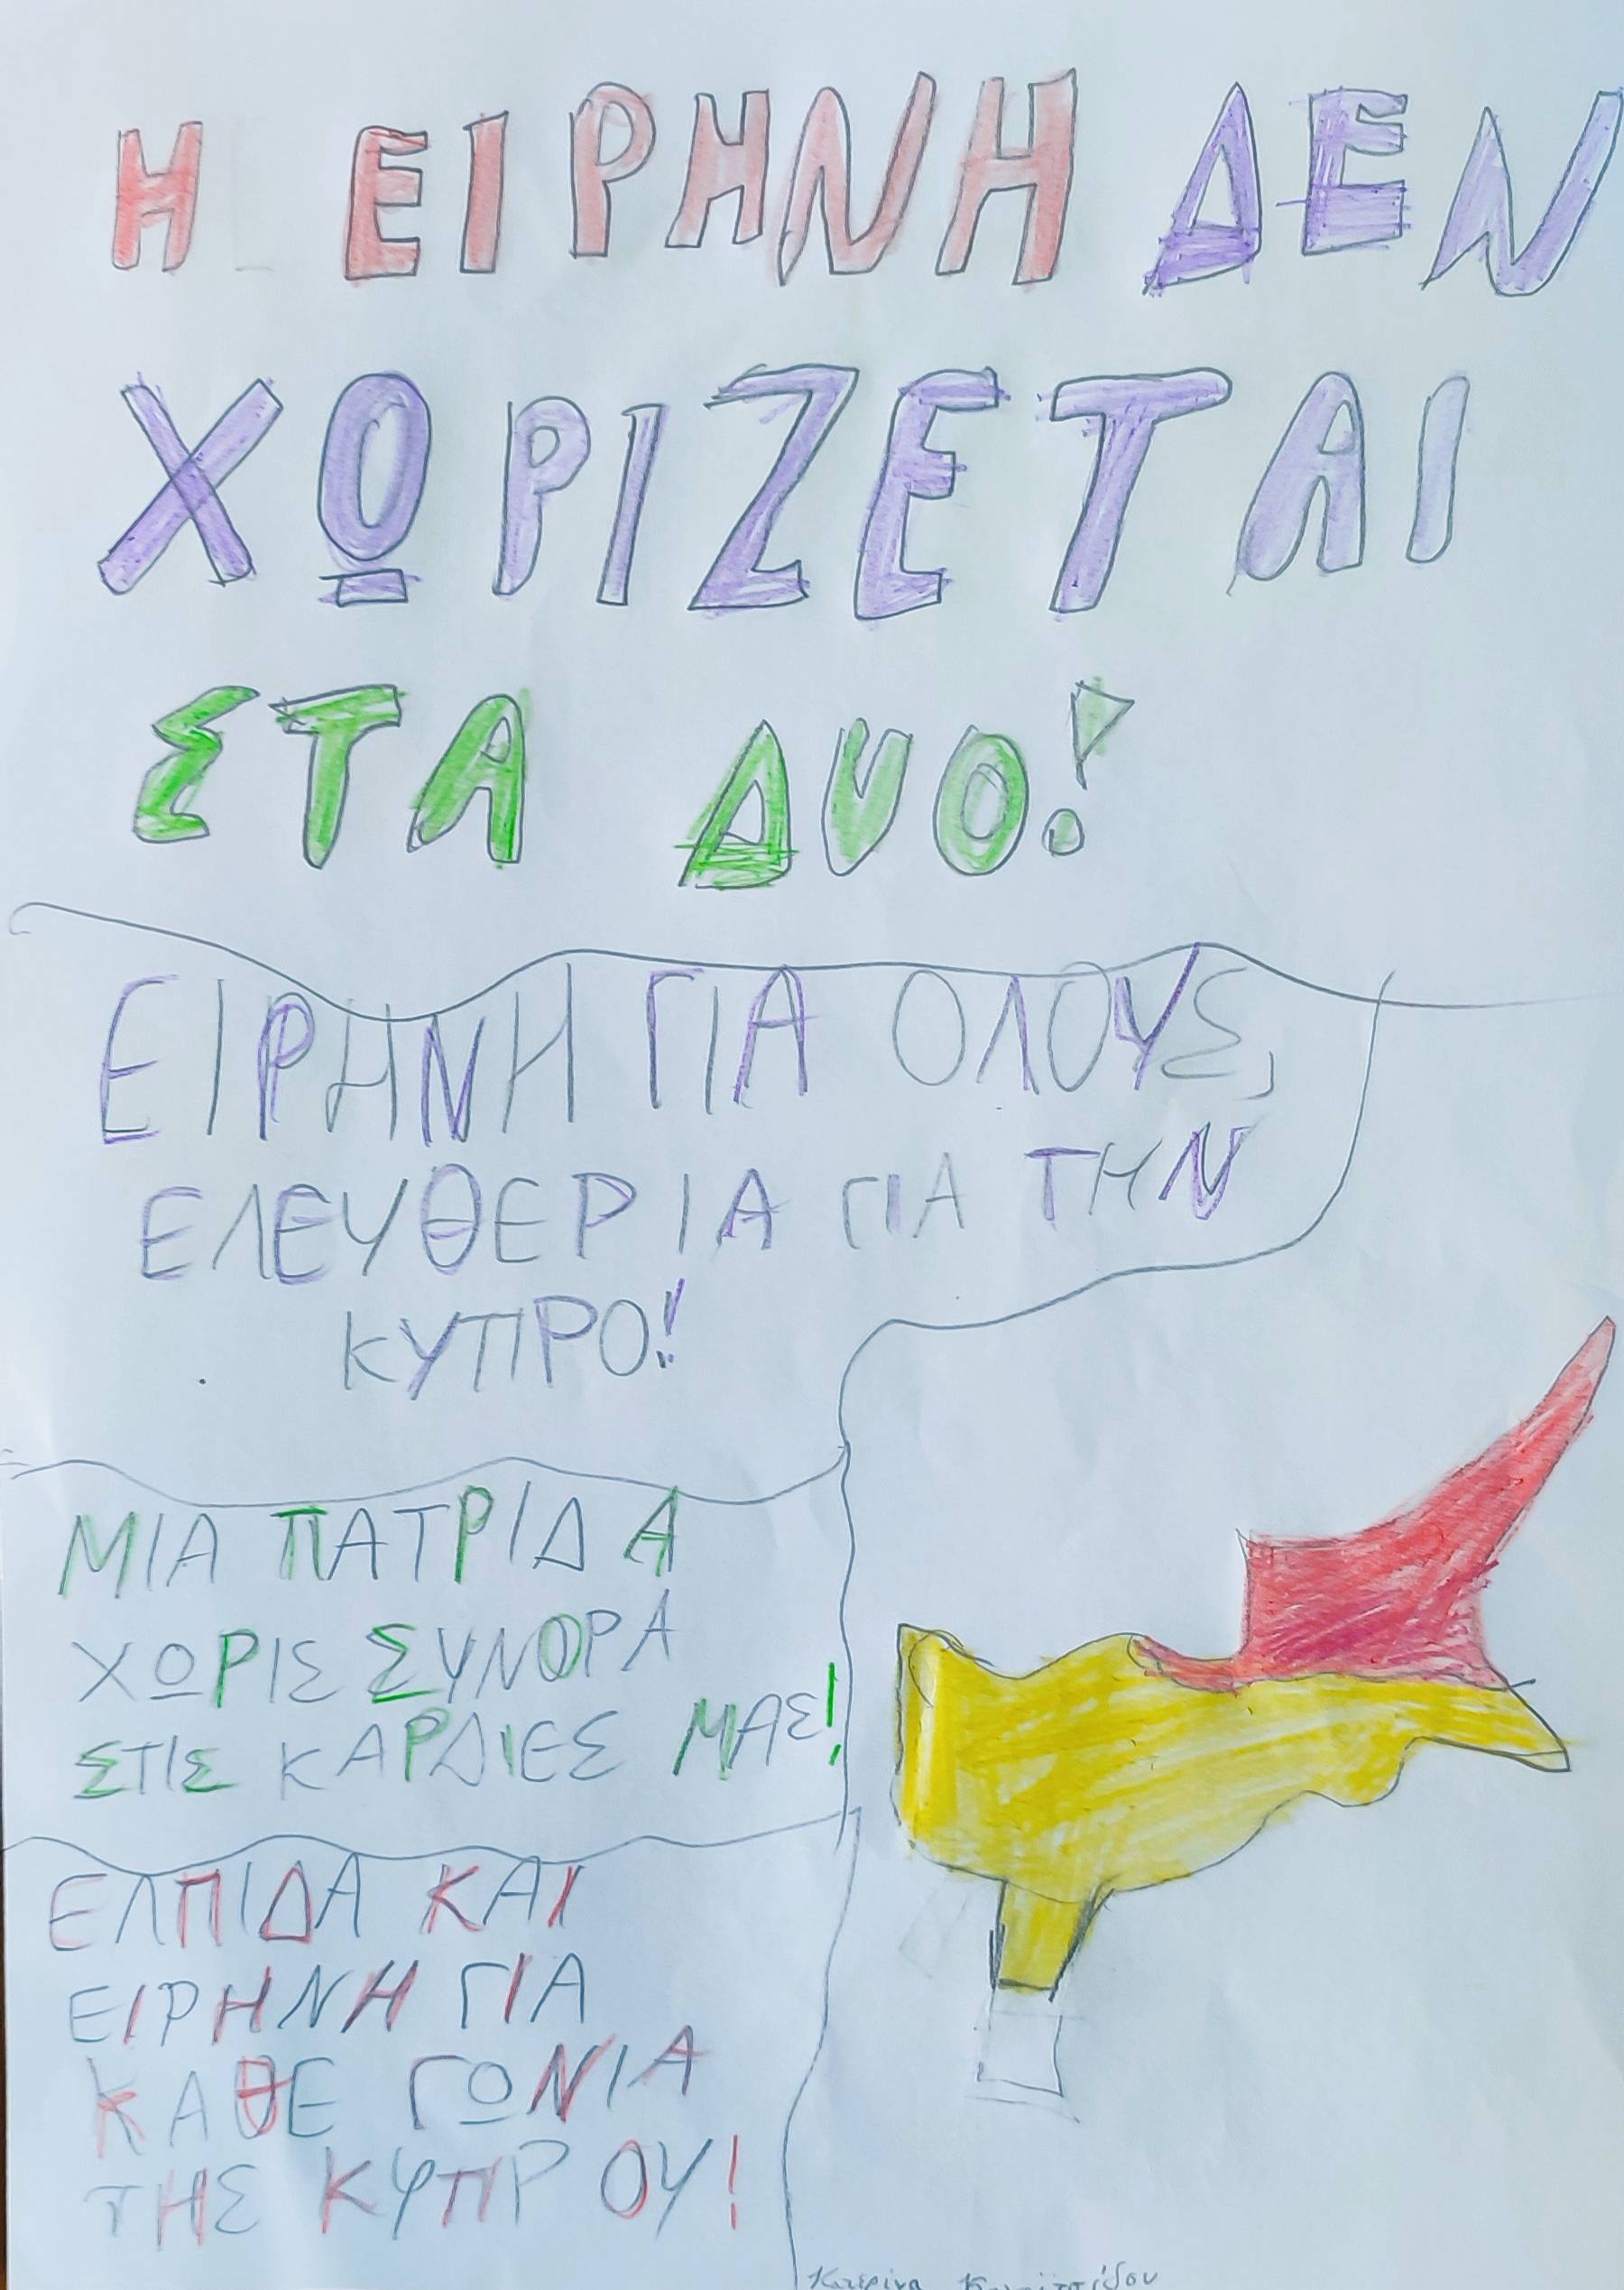 Η ΕΙΡΗΝΗ ΔΕΝ
ΧΩΡΙΖΕΤΑΙ
ΣΤΑ ΔΥΟ!
ΕΙΡΗΝΗ ΓΙΑ ΟΛΟΥΣ,
ΕΛΕΥΘΕΡΙΑ ΓΙΑ ΤΗΝ
ΚΥΠΡΟ!
ΜΙΑ ΠΑΤΡΙΔΑ
ΧΩΡΙΣ ΣΥΝΟΡΑ
ΣΤΙΣ ΚΑΡΔΙΕΣ ΜΑΣ!
ΕΛΠΙΔΑ ΚΑΙ
ΕΙΡΗΝΗ ΓΙΑ
ΚΑΘΕ ΓΩΝΙΑ
ΤΗΣ ΚΥΠΡΟΥ!
Κατερίνα